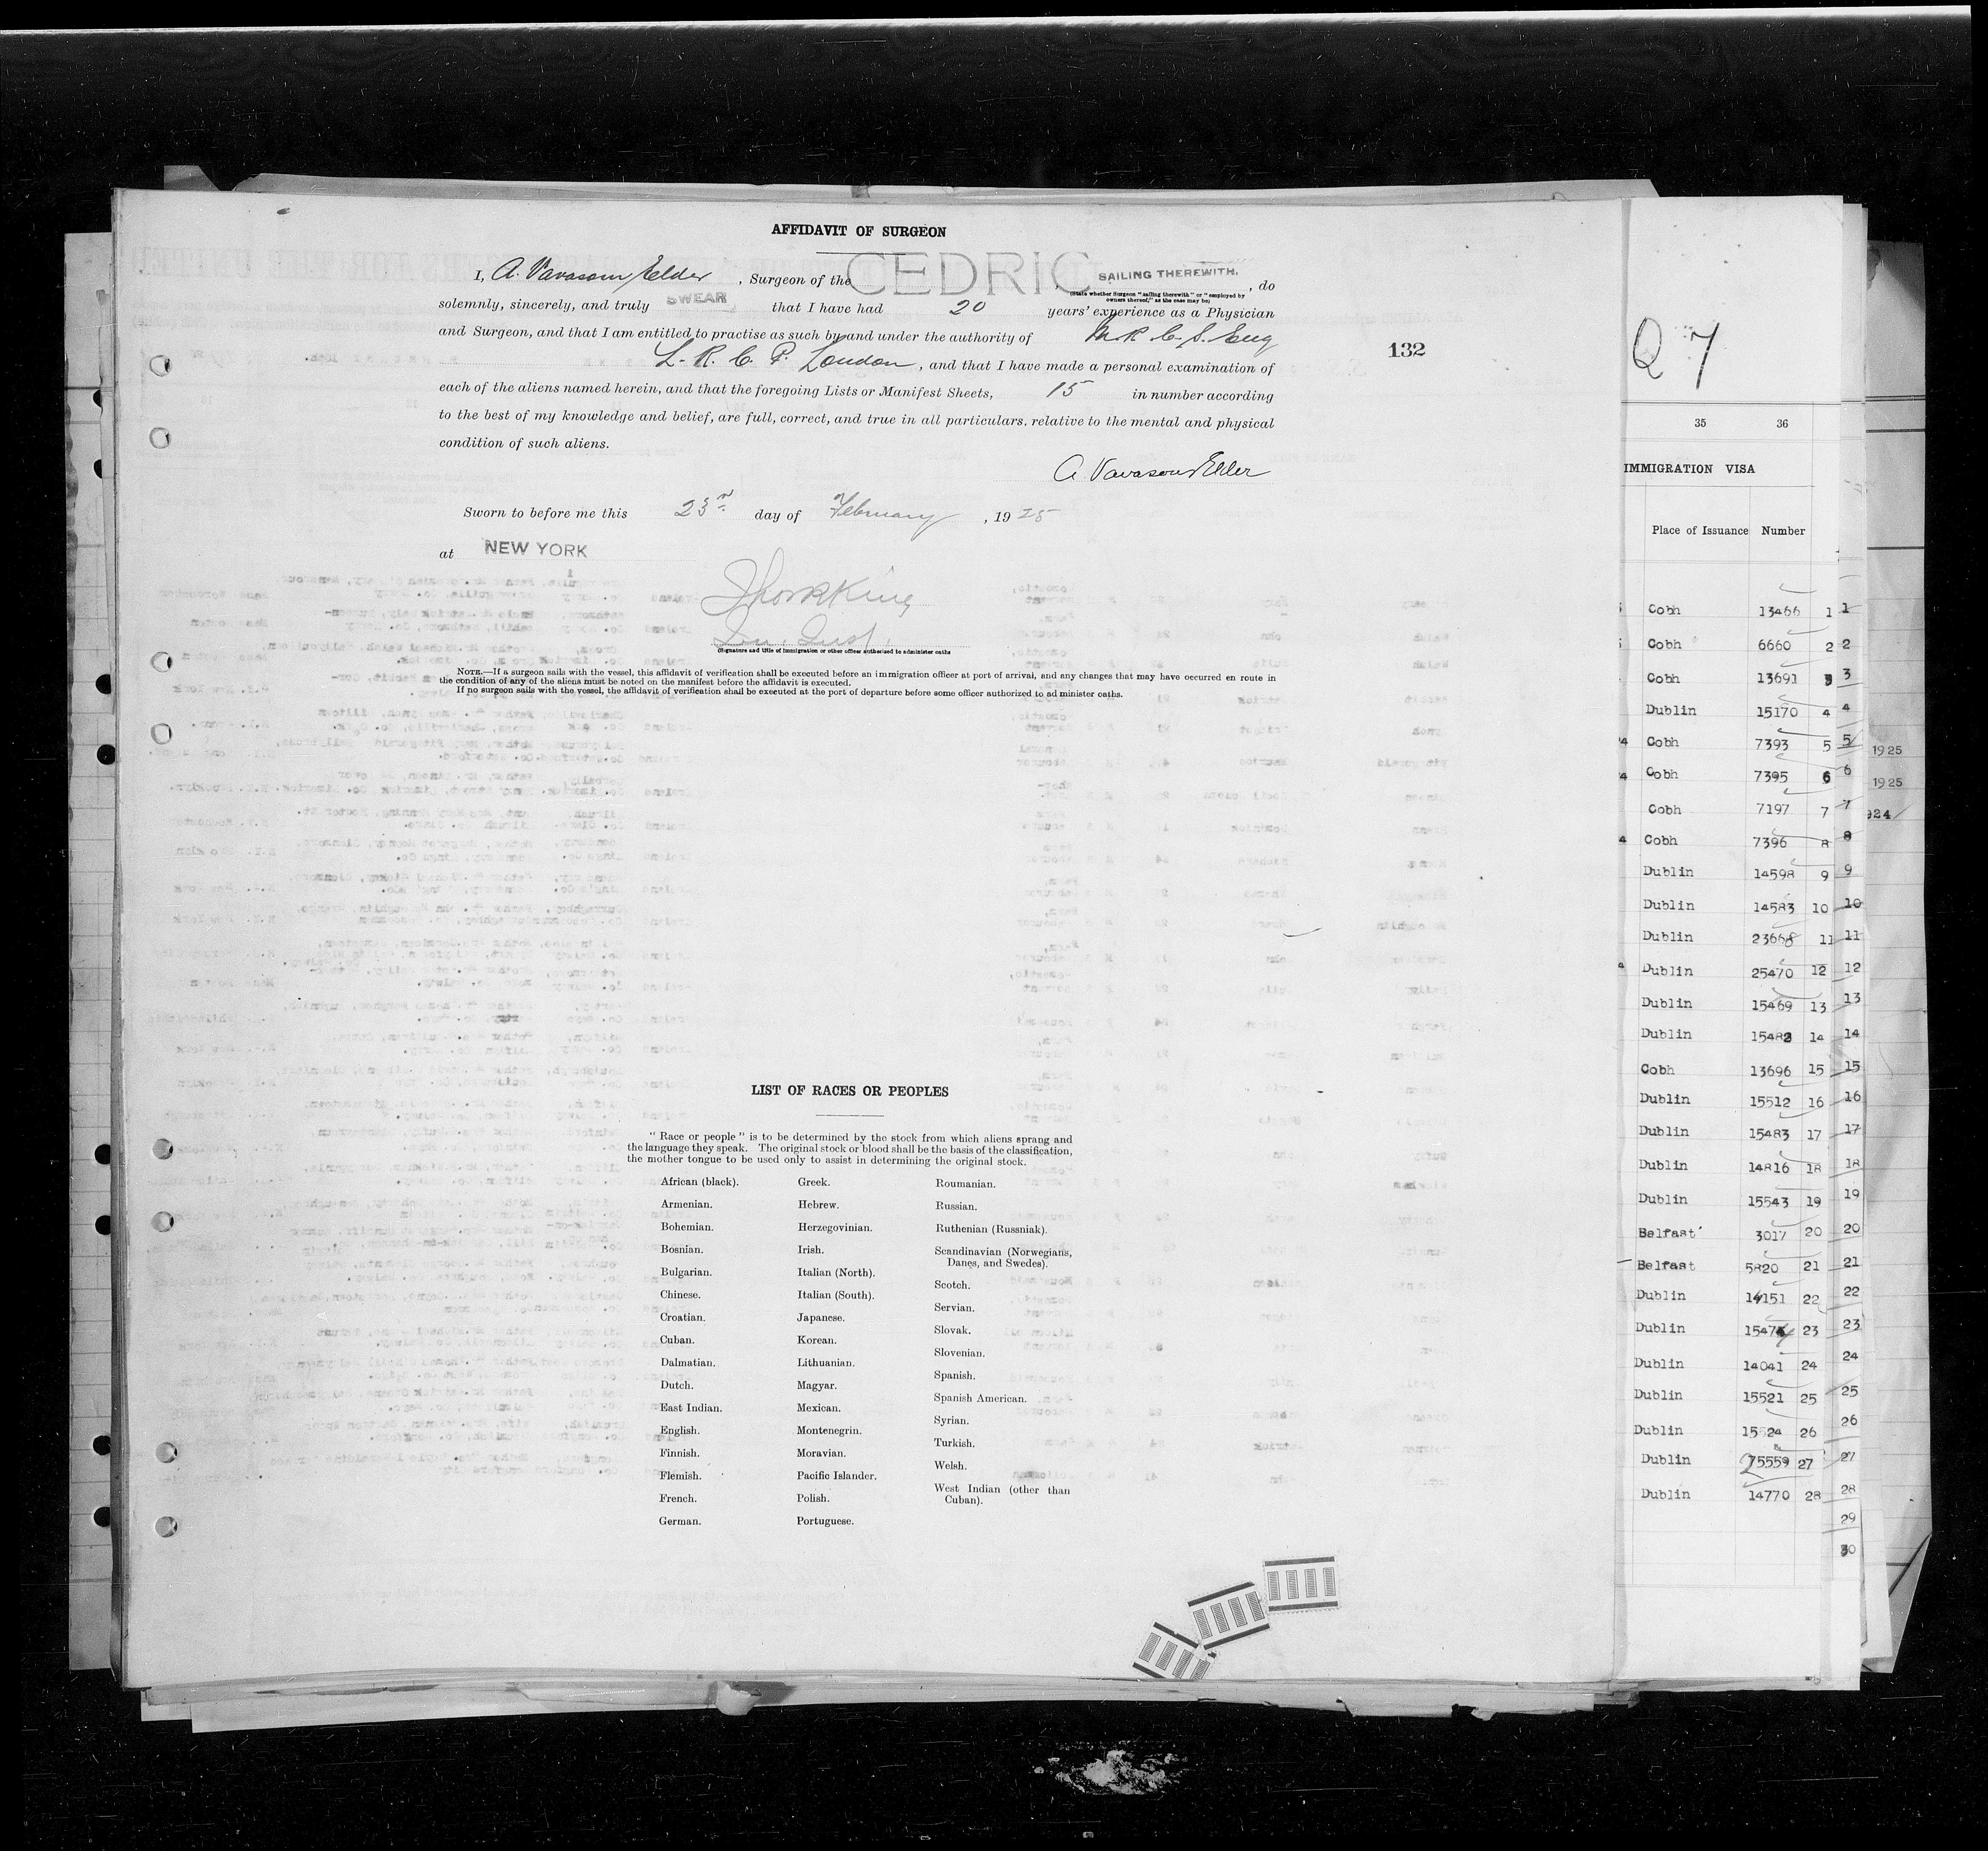 AFFIDAVIT OF SURGEON
I, A. Vavasour Elder, Surgeon of the CEDRIC, SAILING THEREWITH, do
(State whether Surgeon "sailing therewith" or "employed by
owners thereof," as the case may be)
solemnly, sincerely, and truly SWEAR that I have had 20 years' experience as a Physician
and Surgeon, and that I am entitled to practise as such by and under the authority of M.R.C.S. Eng
L.R.C.P. London, and that I have made a personal examination of
each of the aliens named herein, and that the foregoing Lists or Manifest Sheets, 15 in number according
to the best of my knowledge and belief, are full, correct, and true in all particulars, relative to the mental and physical
condition of such aliens.
A Vavasour Elder
Sworn to before me this 23rd day of February, 1925
at NEW YORK
(Signature and title of immigration or other officer authorized to administer oaths
NOTE.—If a surgeon sails with the vessel, this affidavit of verification shall be executed before an immigration officer at port of arrival, and any changes that may have occurred en route in
the condition of any of the aliens must be noted on the manifest before the affidavit is executed.
If no surgeon sails with the vessel, the affidavit of verification shall be executed at the port of departure before some officer authorized to administer oaths.
132
LIST OF RACES OR PEOPLES
"Race or people" is to be determined by the stock from which aliens sprang and
the language they speak. The original stock or blood shall be the basis of the classification,
the mother tongue to be used only to assist in determining the original stock.
African (black).
Armenian.
Bohemian.
Bosnian.
Bulgarian.
Chinese.
Croatian.
Cuban.
Dalmatian.
Dutch.
East Indian.
English.
Finnish.
Flemish.
French.
German.
Greek.
Hebrew.
Herzegovinian.
Irish.
Italian (North).
Italian (South).
Japanese.
Korean.
Lithuanian.
Magyar.
Mexican.
Montenegrin.
Moravian.
Pacific Islander.
Polish.
Portuguese.
Roumanian.
Russian.
Ruthenian (Russniak).
Scandinavian (Norwegians,
Danes, and Swedes).
Scotch.
Servian.
Slovak.
Slovenian.
Spanish.
Spanish American.
Syrian.
Turkish.
Welsh.
West Indian (other than
Cuban).
Q 7
35 36
IMMIGRATION VISA
Place of Issuance Number
Cobh 13466 1 1
Cobh 6660 2 2
Cobh 13691 3 3
Dublin 15170 4 4
Cobh 7393 5 5
Cobh 7395 6 6
Cobh 7197 7 7
Cobh 7396 8 8
Dublin 14598 9 9
Dublin 14583 10 10
Dublin 23668 11 11
Dublin 25470 12 12
Dublin 15469 13 13
Dublin 15482 14 14
Cobh 13696 15 15
Dublin 15512 16 16
Dublin 15483 17 17
Dublin 14816 18 18
Dublin 15543 19 19
Belfast 3017 20 20
Belfast 5820 21 21
Dublin 14151 22 22
Dublin 15474 23 23
Dublin 14041 24 24
Dublin 15521 25 25
Dublin 15524 26 26
Dublin 25559 27 27
Dublin 14770 28 28
29
30
1925
1925
924